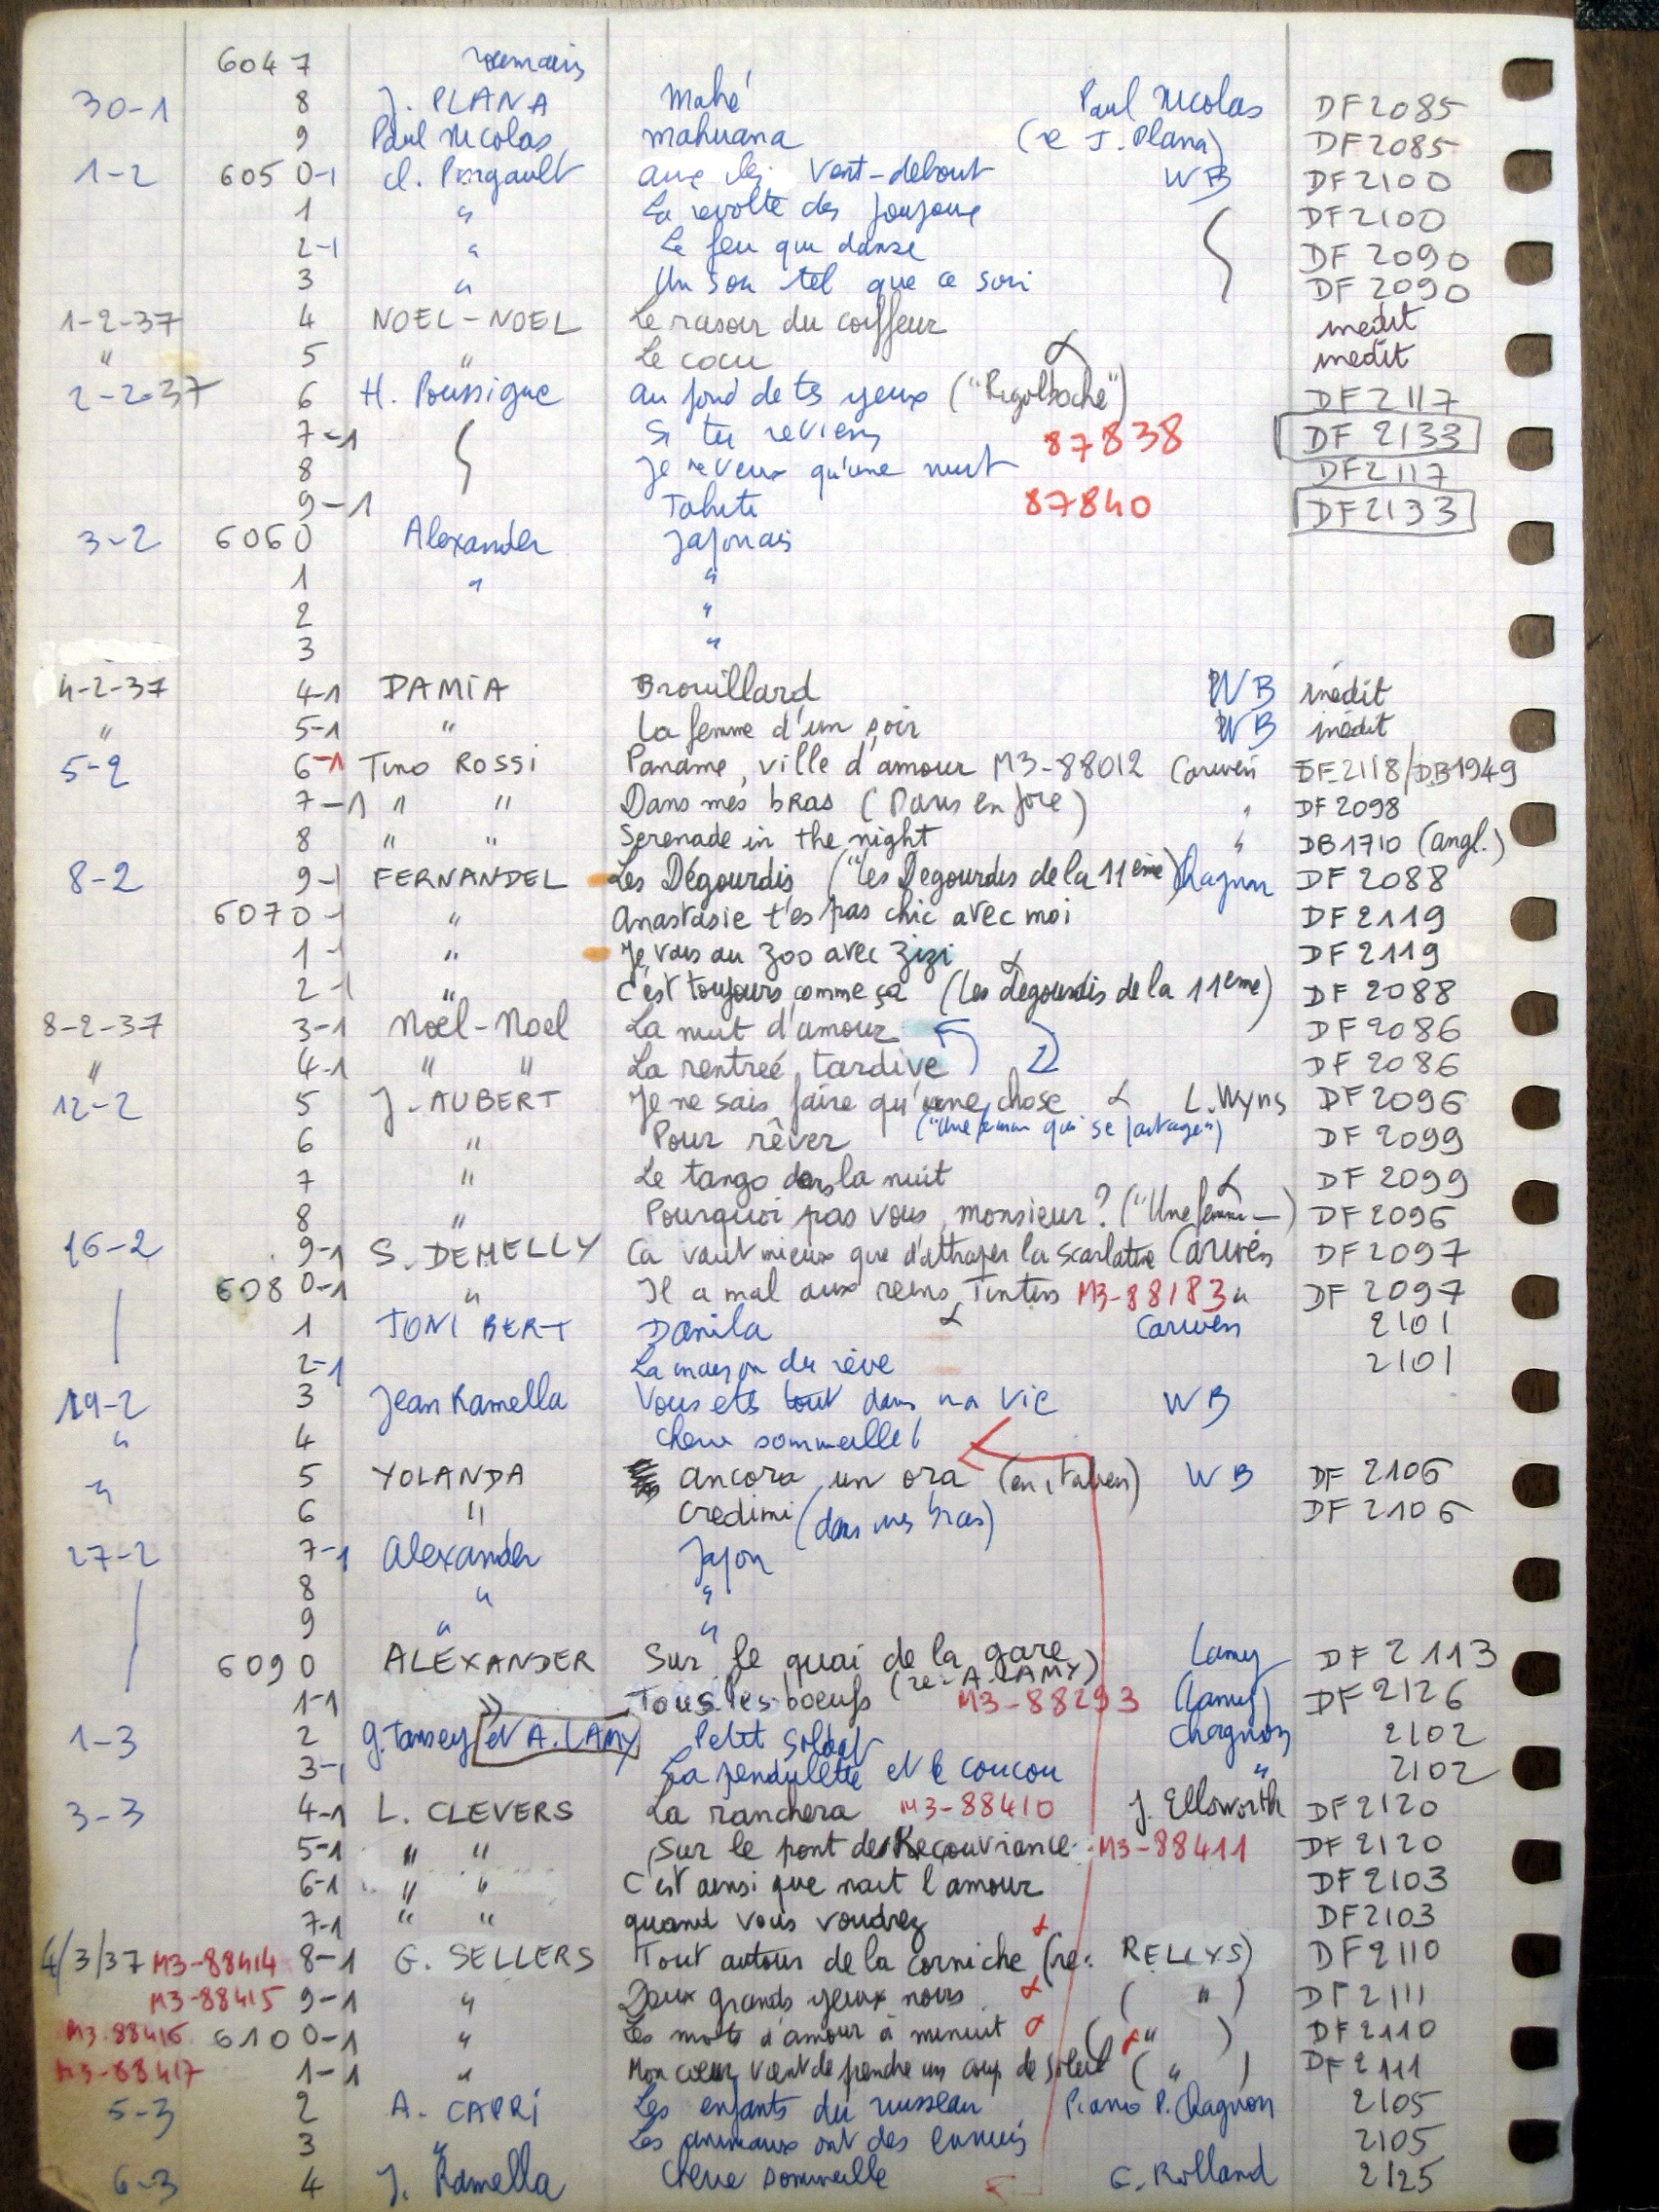 6047 roumains
30-1 8 J. PLANA Mahé Paul Nicolas DF2085
9 Paul Nicolas mahuana (re J. Plana) DF2085
1-2 6050-1 Cl. Pingault Vent-debout WB DF2100
1 " La révolte des joujoux DF2100
2-1 " Le feu qui danse DF 2090
3 " Un soir tel que ce soir DF 2090
1-2-37 4 NOEL-NOEL Le rasoir du coiffeur inedit
" 5 " Le cocu inedit
2-2-37 6 H. Poussigue au fond de tes yeux ("Rigolboche") DF2117
7-1 Si tu reviens 87838 DF 2133
8 Je ne veux qu'une nuit DF2117
9-1 Tahiti 87840 DF2133
3-2 6060 Alexander Japonais
1 " "
2 "
3 "
4-2-37 4-1 DAMIA Brouillard WB inédit
" 5-1 " La femme d'un soir WB inédit
5-2 6-1 Tino ROSSI Paname, ville d'amour M3-88012 Cariven DF2118/DB1949
7-1 " " Dans mes bras (Paris en joie) " DF 2098
8 " " Serenade in the night " DB1710 (angl.)
8-2 9-1 FERNANDEL Les Dégourdis ("Les Degourdis de la 11ème) Chagnon DF 2088
6070-1 " Anastasie t'es pas chic avec moi DF2119
1-1 " Je vais au zoo avec zizi DF 2119
2-1 " C'est toujours comme ça (Les degourdis de la 11ème) DF 2088
8-2-37 3-1 Noël-Noel La nuit d'amour DF 2086
" 4-1 " " La rentreé tardive DF 2086
12-2 5 J. AUBERT Je ne sais faire qu'une chose L. Wyns DF 2096
("Une femme qui se partage")
6 " Pour rêver DF 2099
7 " Le tango dans la nuit DF 2099
8 " Pourquoi pas vous, monsieur? ("Une femme —) DF 2096
16-2 9-1 S. DEMELLY Ca vaut mieux que d'attraper la scarlatine Cariven DF2097
6080-1 " Il a mal aux reins Tintin M3-88183 " DF 2097
1 TONI BERT Danila Cariven 2101
2-1 La maison du rêve 2101
19-2 3 Jean Ramella Vous etes tout dans ma vie WB
" 4 Cherie sommeille!
" 5 YOLANDA ancora un ora (en italien) WB DF 2106
6 " credimi (dans mes bras) DF 2106
27-2 7-1 Alexander Japon
8 " "
9 " "
6090 ALEXANDER Sur le quai de la gare Lamy DF 2113
1-1 " Tous les boeufs (re- A. LAMY) M3-88293 (Lamy) DF 2126
1-3 2 G. Tansey et A. LAMY Petit soldat Chagnon 2102
3-1 La pendulette et le coucou " 2102
3-3 4-1 L. CLEVERS La ranchera M3-88410 J. Ellsworth DF2120
5-1 " " Sur le pont de Recouvrance M3-88411 DF 2120
6-1 " " C'est ainsi que nait l'amour DF 2103
7-1 " " quand vous voudrez DF2103
4/3/37 M3-88414 8-1 G. SELLERS Tout autour de la corniche (re: RELLYS) DF2110
M3-88415 9-1 " Deux grands yeux noirs ( " ) DF2111
M3-88416 6100-1 " Les mots d'amour à minuit ( " ) DF2110
M3-88417 1-1 " Mon coeur vient de prendre un coup de soleil ( " ) DF2111
5-3 2 A. CAPRI Les enfants du ruisseau Piano P. Chagnon 2105
3 " Les animaux ont des ennuis 2105
6-3 4 J. Ramella Cherie sommeille C. Rolland 2125